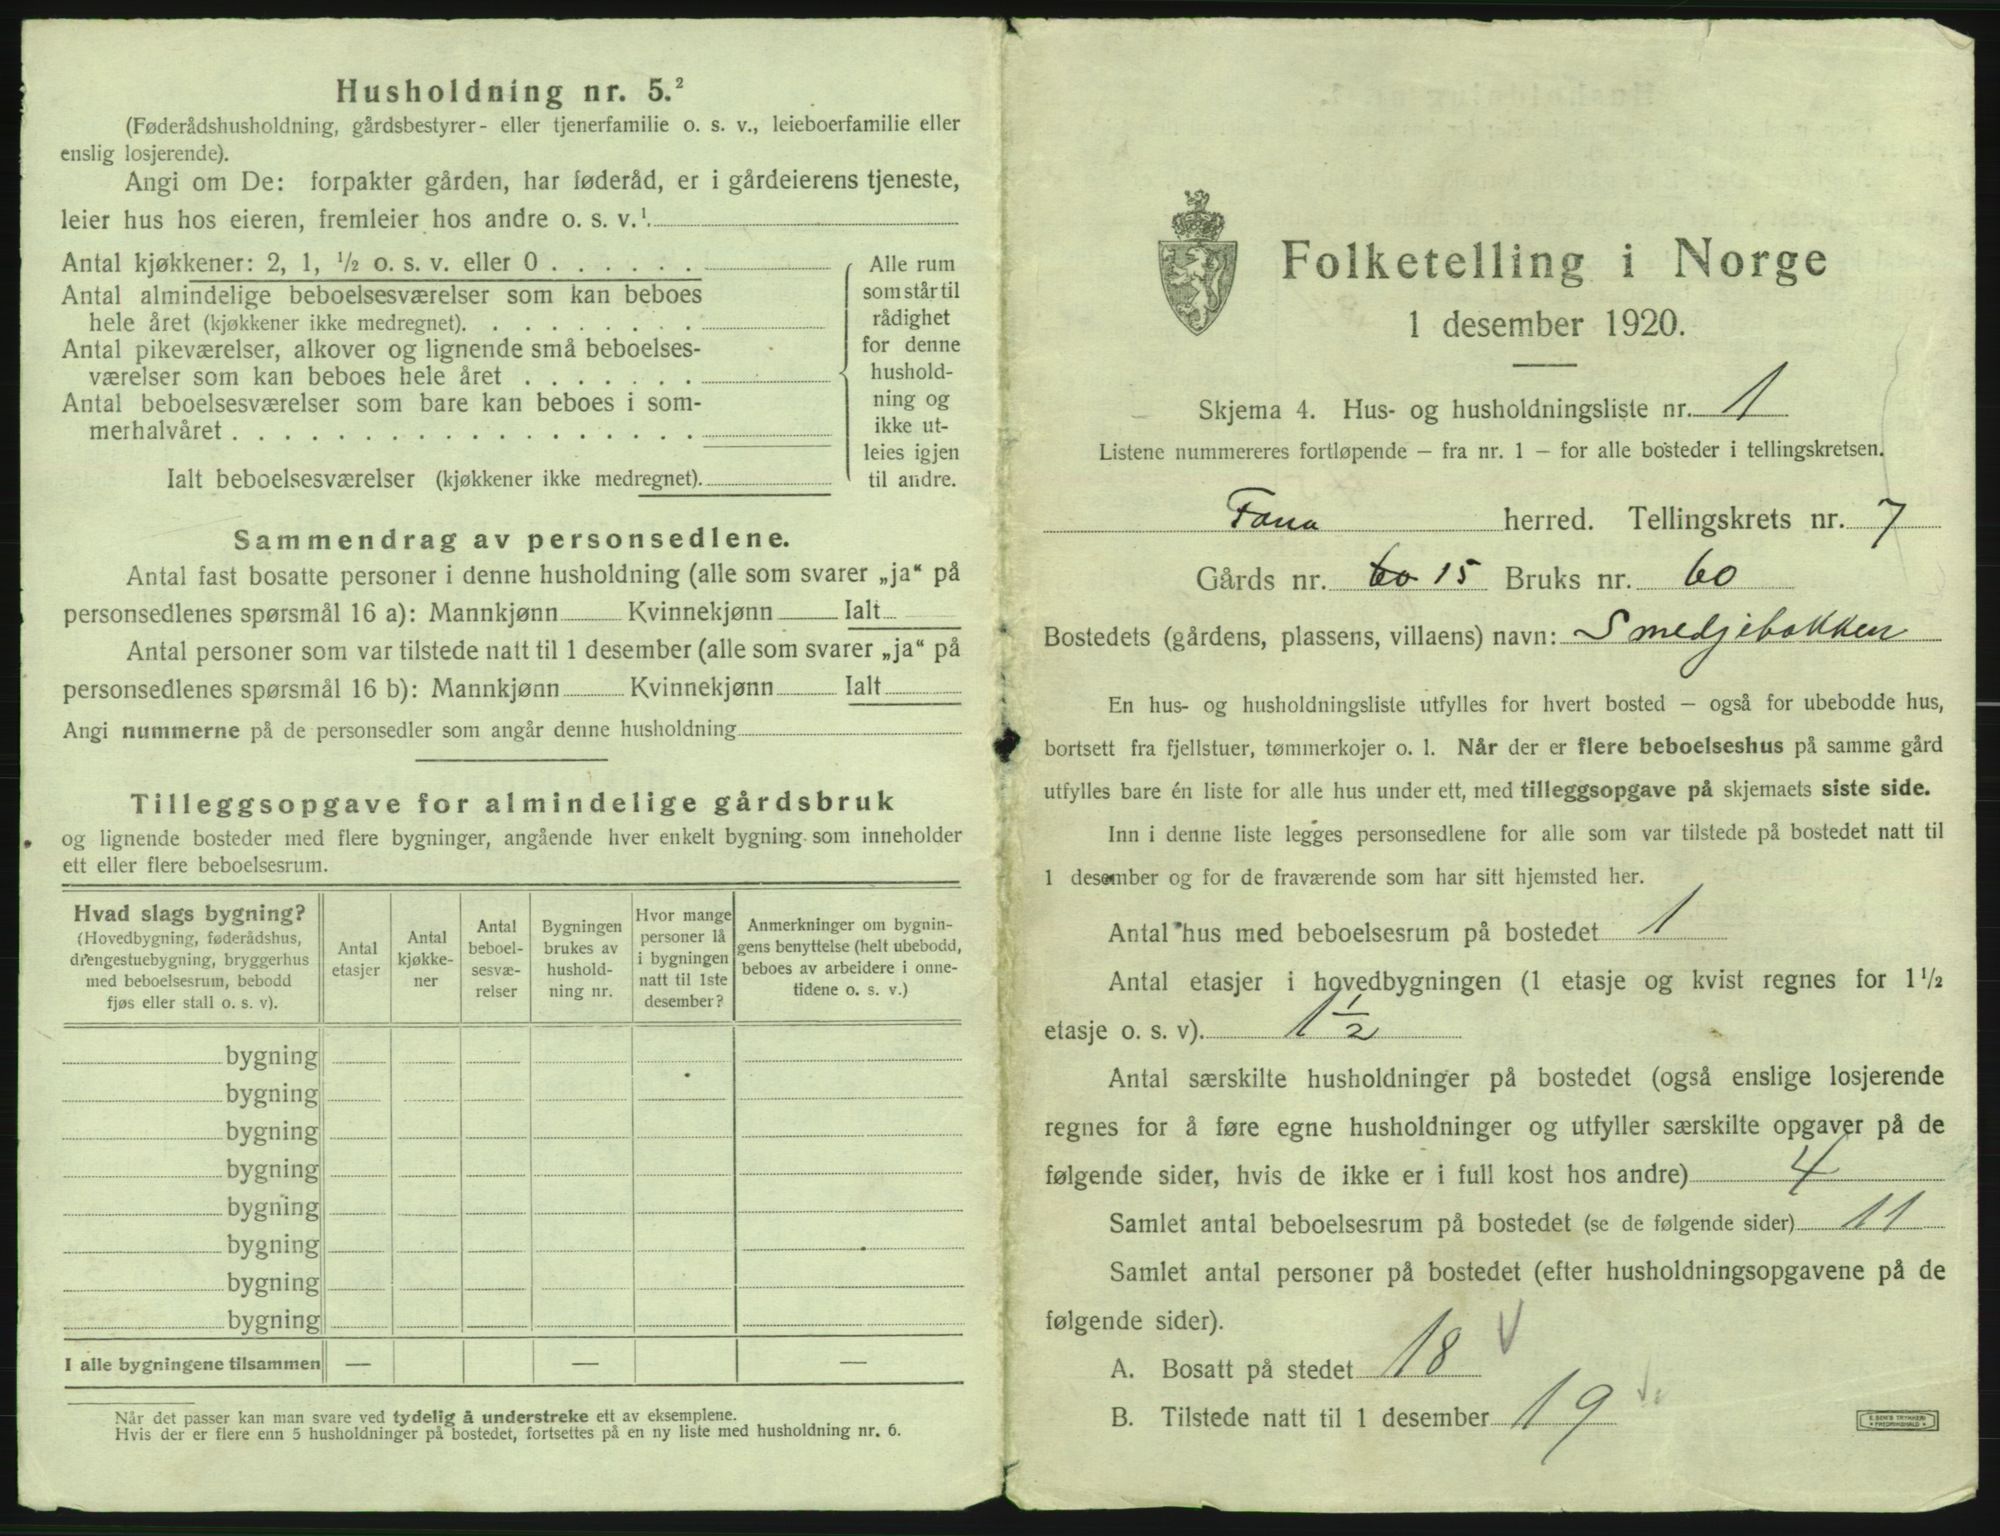 Husholdning nr. 5.²
(Føderådshusholdning, gårdsbestyrer- eller tjenerfamilie o. s. v., leieboerfamilie eller
enslig losjerende).
Angi om De: forpakter gården, har føderåd, er i gårdeierens tjeneste,
leier hus hos eieren, fremleier hos andre o. s. v.¹
Antal kjøkkener: 2, 1, ½ o. s. v. eller 0 . . . . . .
Antal almindelige beboelsesværelser som kan beboes
hele året (kjøkkener ikke medregnet). . . . . . . . .
Antal pikeværelser, alkover og lignende små beboelses-
værelser som kan beboes hele året . . . . . . .
Antal beboelsesværelser som bare kan beboes i som-
merhalvåret . . . . . . . . . . . . . . . . . .
Ialt beboelsesværelser (kjøkkener ikke medregnet).
Alle rum
som står til
rådighet
for denne
hushold-
ning og
ikke ut-
leies igjen
til andre.
Sammendrag av personsedlene.
Antal fast bosatte personer i denne husholdning (alle som svarer „ja“ på
personsedlenes spørsmål 16 a): Mannkjønn Kvinnekjønn Ialt
Antal personer som var tilstede natt til 1 desember (alle som svarer „ja“ på
personsedlenes spørsmål 16 b): Mannkjønn Kvinnekjønn Ialt
Angi nummerne på de personsedler som angår denne husholdning
Tilleggsopgave for almindelige gårdsbruk
og lignende bosteder med flere bygninger, angående hver enkelt bygning som inneholder
ett eller flere beboelsesrum.
Hvad slags bygning?
(Hovedbygning, føderådshus,
drengestuebygning, bryggerhus
med beboelsesrum, bebodd
fjøs eller stall o. s. v).
Antal
etasjer
Antal
kjøkke-
ner
Antal
beboel-
sesvæ-
relser
Bygningen
brukes av
hushold-
ning nr.
Hvor mange
personer lå
i bygningen
natt til 1ste
desember?
Anmerkninger om bygnin-
gens benyttelse (helt ubebodd,
beboes av arbeidere i onne-
tidene o. s. v.)
bygning
bygning
bygning
bygning
bygning
bygning
bygning
bygning
I alle bygningene tilsammen — — —
Når det passer kan man svare ved tydelig å understreke ett av eksemplene.
Hvis der er flere enn 5 husholdninger på bostedet, fortsettes på en ny liste med husholdning nr. 6.
Folketelling i Norge
1 desember 1920.
Skjema 4. Hus- og husholdningsliste nr. 1
Listene nummereres fortløpende — fra nr. 1 — for alle bosteder i tellingskretsen.
Fana herred. Tellingskrets nr. 7
Gårds nr. 60 15 Bruks nr. 60
Bostedets (gårdens, plassens, villaens) navn: Smedjebakken
En hus- og husholdningsliste utfylles for hvert bosted — også for ubebodde hus,
bortsett fra fjellstuer, tømmerkojer o. l. Når der er flere beboelseshus på samme gård
utfylles bare én liste for alle hus under ett, med tilleggsopgave på skjemaets siste side.
Inn i denne liste legges personsedlene for alle som var tilstede på bostedet natt til
1 desember og for de fraværende som har sitt hjemsted her.
Antal hus med beboelsesrum på bostedet 1
Antal etasjer i hovedbygningen (1 etasje og kvist regnes for 1½
etasje o. s. v). 1½
Antal særskilte husholdninger på bostedet (også enslige losjerende
regnes for å føre egne husholdninger og utfyller særskilte opgaver på de
følgende sider, hvis de ikke er i full kost hos andre) 4
Samlet antal beboelsesrum på bostedet (se de følgende sider) 11
Samlet antal personer på bostedet (efter husholdningsopgavene på de
følgende sider).
A. Bosatt på stedet 18
B. Tilstede natt til 1 desember 19